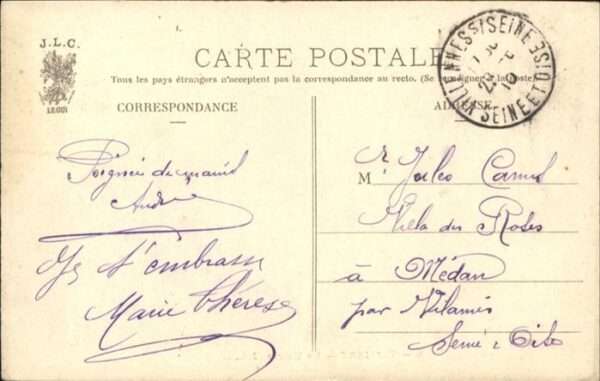 J.L.C.
CARTE POSTALE
Tous les pays étrangers n'acceptent pas la correspondance au recto. (Se renseigner à la Poste).
CORRESPONDANCE
ADRESSE
VILLENNES S/ SEINE SEINE ET OISE
Poignée de main
André
Je t'embrasse
Marie Thérèse
M r Jules
Villa des Roses
à Médan
par Vilennes
Seine & Oise